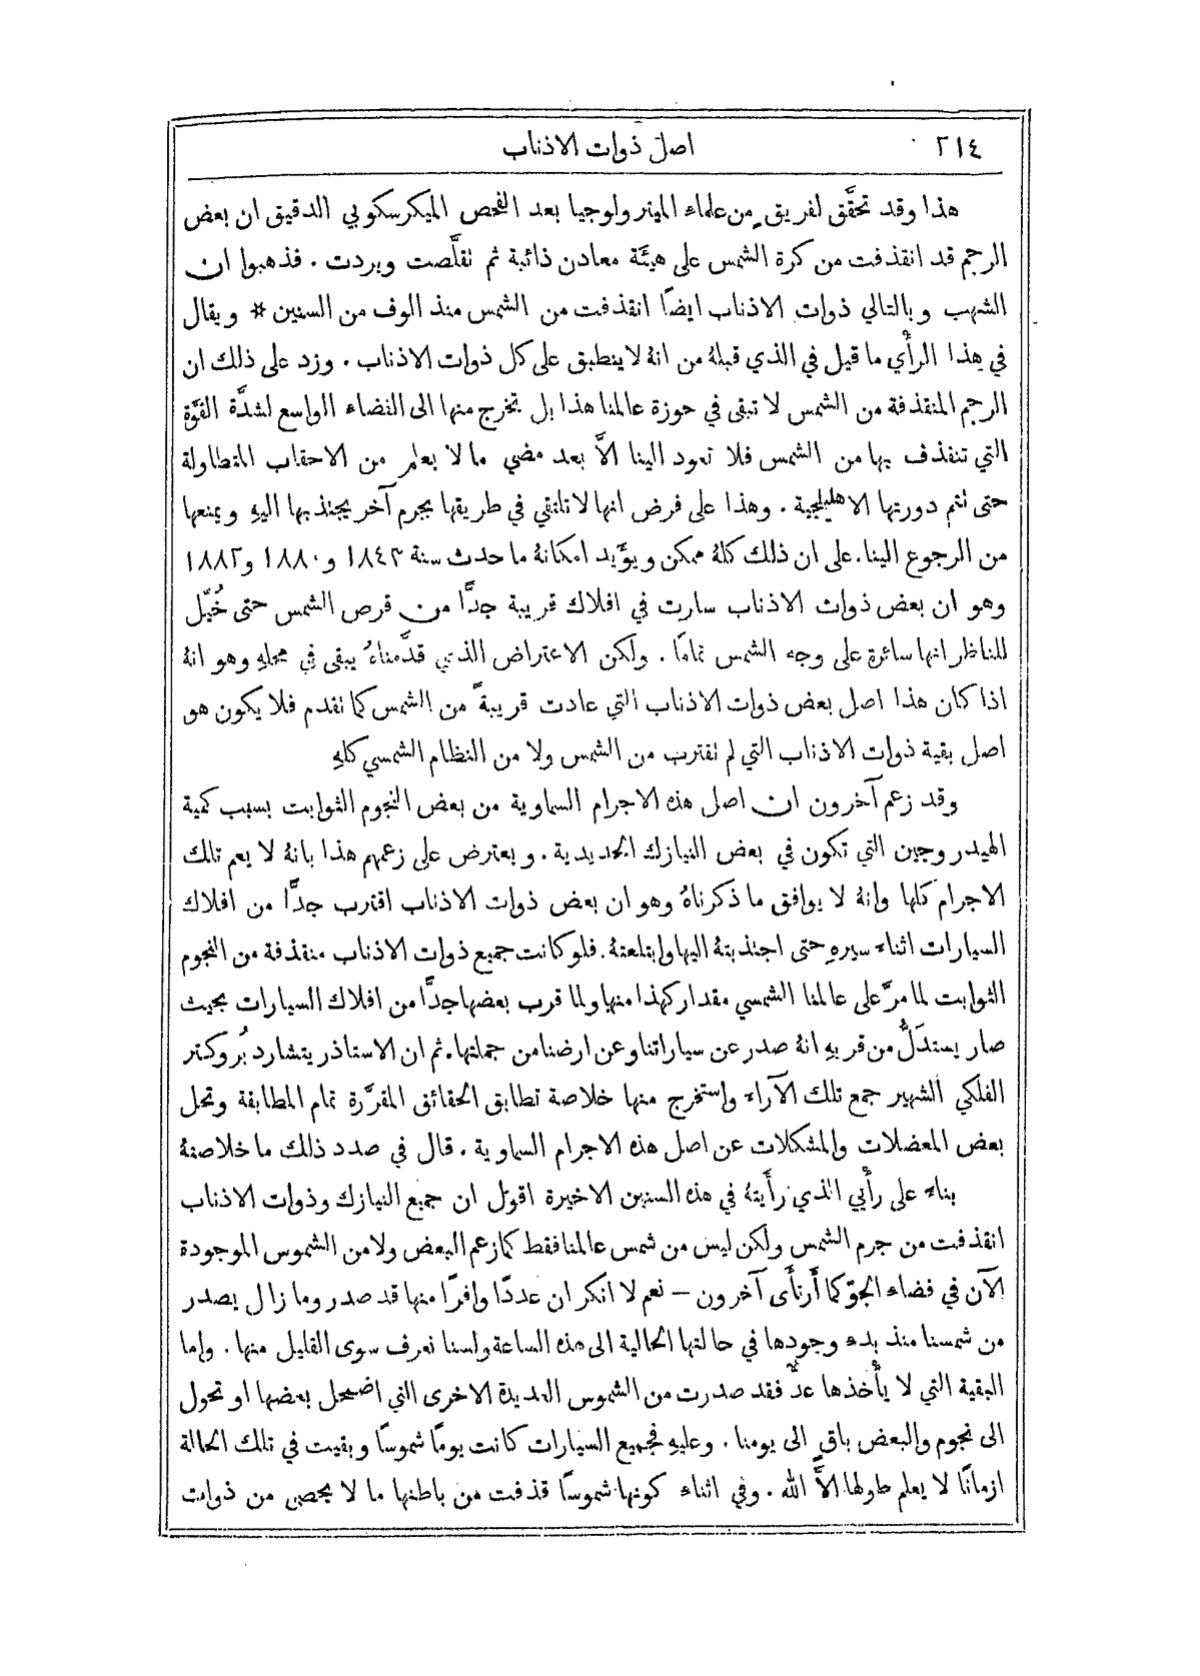 ٢١٤ اصل ذوات الاذناب
هذا وقد تحقَّق لفريقٍ من علماء المينرولوجيا بعد الفحص الميكرسكوبي الدقيق ان بعض
الرجم قد انقذفت من كرة الشمس على هيئة معادن ذائبة ثم نقلَّصت وبردت . فذهبوا ان
الشهب وبالتالي ذوات الاذناب ايضًا انقذفت من الشمس منذ الوف من السنين * ويقال
في هذا الرأي ما قيل في الذي قبلهُ من انهُ لا ينطبق على كل ذوات الاذناب . وزد على ذلك ان
الرجم المنقذفة من الشمس لا تبقى في حوزة عالمنا هذا بل تخرج منها الى الفضاء الواسع لشدَّة القوَّة
التي تنقذف بها من الشمس فلا تعود الينا الاَّ بعد مضي ما لا يعلم من الاحقاب المتطاولة
حتى تتم دورتها الاهليلجية . وهذا على فرض انها لا تلتقي في طريقها بجرم آخر يجتذبها اليهِ ويمنعها
من الرجوع الينا . على ان ذلك كلهُ ممكن ويؤَيد امكانهُ ما حدث سنة ١٨٤٣ و١٨٨٠ و١٨٨٢
وهو ان بعض ذوات الاذناب سارت في افلاك قريبة جدًّا من قرص الشمس حتى خُيِّل
للناظر انها سائرة على وجه الشمس تمامًا . ولكن الاعتراض الذي قدَّمناهُ يبقى في محلهِ وهو انهُ
اذا كان هذا اصل بعض ذوات الاذناب التي عادت قريبةً من الشمس كما تقدم فلا يكون هو
اصل بقية ذوات الاذناب التي لم تقترب من الشمس ولا من النظام الشمسي كلهِ
وقد زعم آخرون ان اصل هذه الاجرام السماوية من بعض النجوم الثوابت بسبب كمية
الهيدروجين التي تكون في بعض النيازك الحديدية . ويعترض على زعمهم هذا بانهُ لا يعم تلك
الاجرام كلها وانهُ لا يوافق ما ذكرناهُ وهو ان بعض ذوات الاذناب اقترب جدًّا من افلاك
السيارات اثناء سيرهِ حتى اجتذبتهُ اليها وابتلعتهُ . فلو كانت جميع ذوات الاذناب منقذفة من النجوم
الثوابت لما مرَّ على عالمنا الشمسي مقدار كهذا منها ولما قرب بعضها جدًّا من افلاك السيارات بحيث
صار يستدَلُّ من قربهِ انهُ صدر عن سياراتنا وعن ارضنا من جملتها . ثم ان الاستاذ ريتشارد بُروكتر
الفلكي الشهير جمع تلك الآراء واستخرج منها خلاصة تطابق الحقائق المقرَّرة تمام المطابقة وتحل
بعض المعضلات والمشكلات عن اصل هذه الاجرام السماوية . قال في صدد ذلك ما خلاصتهُ
بناءً على رأيي الذي رأَيتهُ في هذه السنين الاخيرة اقول ان جميع النيازك وذوات الاذناب
انقذفت من جرم الشمس ولكن ليس من شمس عالمنا فقط كما زعم البعض ولا من الشموس الموجودة
الآن في فضاء الجوّ كما أَرتأَى آخرون – نعم لا انكر ان عددًا وافرًا منها قد صدر وما زال يصدر
من شمسنا منذ بدء وجودها في حالتها الحالية الى هذه الساعة ولسنا نعرف سوى القليل منها . واما
البقية التي لا يأْخذها عدٌّ فقد صدرت من الشموس العديدة الاخرى التي اضمحل بعضها او تحول
الى نجوم والبعض باقٍ الى يومنا . وعليهِ فجميع السيارات كانت يومًا شموسًا وبقيت في تلك الحالة
ازمانًا لا يعلم طولها الاَّ الله . وفي اثناء كونها شموسًا قذفت من باطنها ما لا يحصى من ذوات